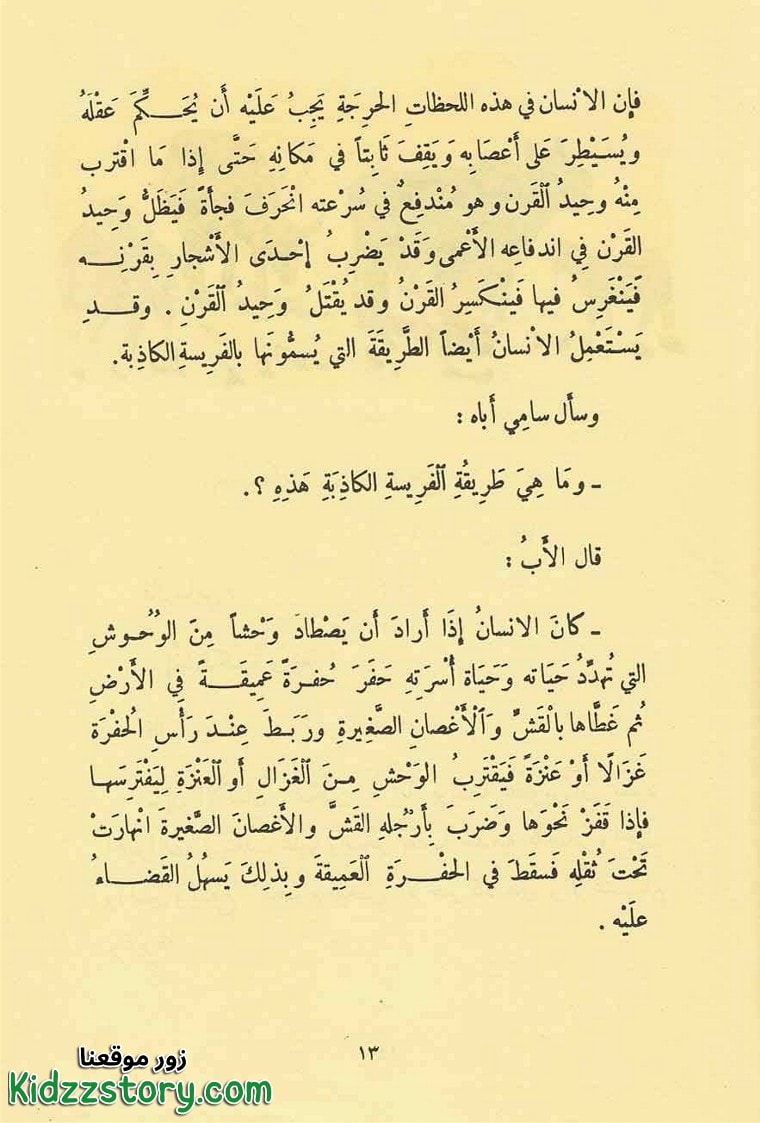 فإن الاْنسان في هذه اللحظاتِ الحرِجَةِ يَجِبُ عَلَيْه أَن يُحَـكِّمَ عَقْلَهُ
ويُسَيْطِرَ عَلى أَعْصَابِه وَيَقِفَ ثَابِتاً في مَكانِهِ حَتَّى إِذا مَا اقْترب
مِنْهُ وحِيدُ ٱلْقَرن وهو مُنْدفِعٌ في سُرْعته انْحَرَفَ فجأةً فَيَظَلُّ وَحِيدُ
القَرْن فِي اندفاعِه الأَعْمى وَقَدْ يَضْرِبُ إِحْـدَى الأَشْجارِ بِقَرْنِـــه
فَيَنْغَرِسُ فيها فَينْكَسِرُ القَرْنُ وقد يُقْتَلُ وَحِيدُ ٱلْقَرْنِ . وقـــدِ
يَسْـتَعْمِلُ الاْنسانُ أَيْضاً الطَّرِيقَةَ التي يُسمُّونَها بالفَرِيسةِ الكاذِبة.
وسأَل سامِي أَباه :
ـ ومَا هِيَ طَرِيقُةِ ٱلْفَرِيسةِ الكاذِبَةِ هَذِهِ ؟.
قال الأَبُ :
ـ كانَ الانسانُ إِذَا أَرادَ أَن يَصْطادَ وَحْشاً مِنَ الوُحُوشِ
التي تُهدِّدُ حَيَاته وَحَيَاة أُسْرَتِهِ حَفَرَ حُفرَةً عَمِيقَـــةً فِي الأَرْضِ
ثُم غَطَّاها بالْقَشِّ وَٱلْأَغْصانِ الصَّغِيرةِ ورَبَـطَ عِنْـدَ رَأْسِ الحُفْرَة
غَزَالًا أَوْ عَنْزَةً فَيَقْتَرِبُ الوَحْش مِـنَ ٱلْغَزَالِ أَو ٱلْعَنْزَةِ لِيَفْتَرِسَهـا
فإذا قَفَزْ نَحْوَها وَضَرَبَ بِأَرْجُلِهِ القَشَّ والأَغصانَ الصَّغيرةَ انْهارَتْ
تَحْتَ ثُقْلِه فَسقَطَ في الحُفْـــرَةِ ٱلْعَمِيقةَ وبِذلِكَ يَسهُلُ القَضــاءُ
علَيْه .
١٣
زور موقعنا
Kidzzstory.com